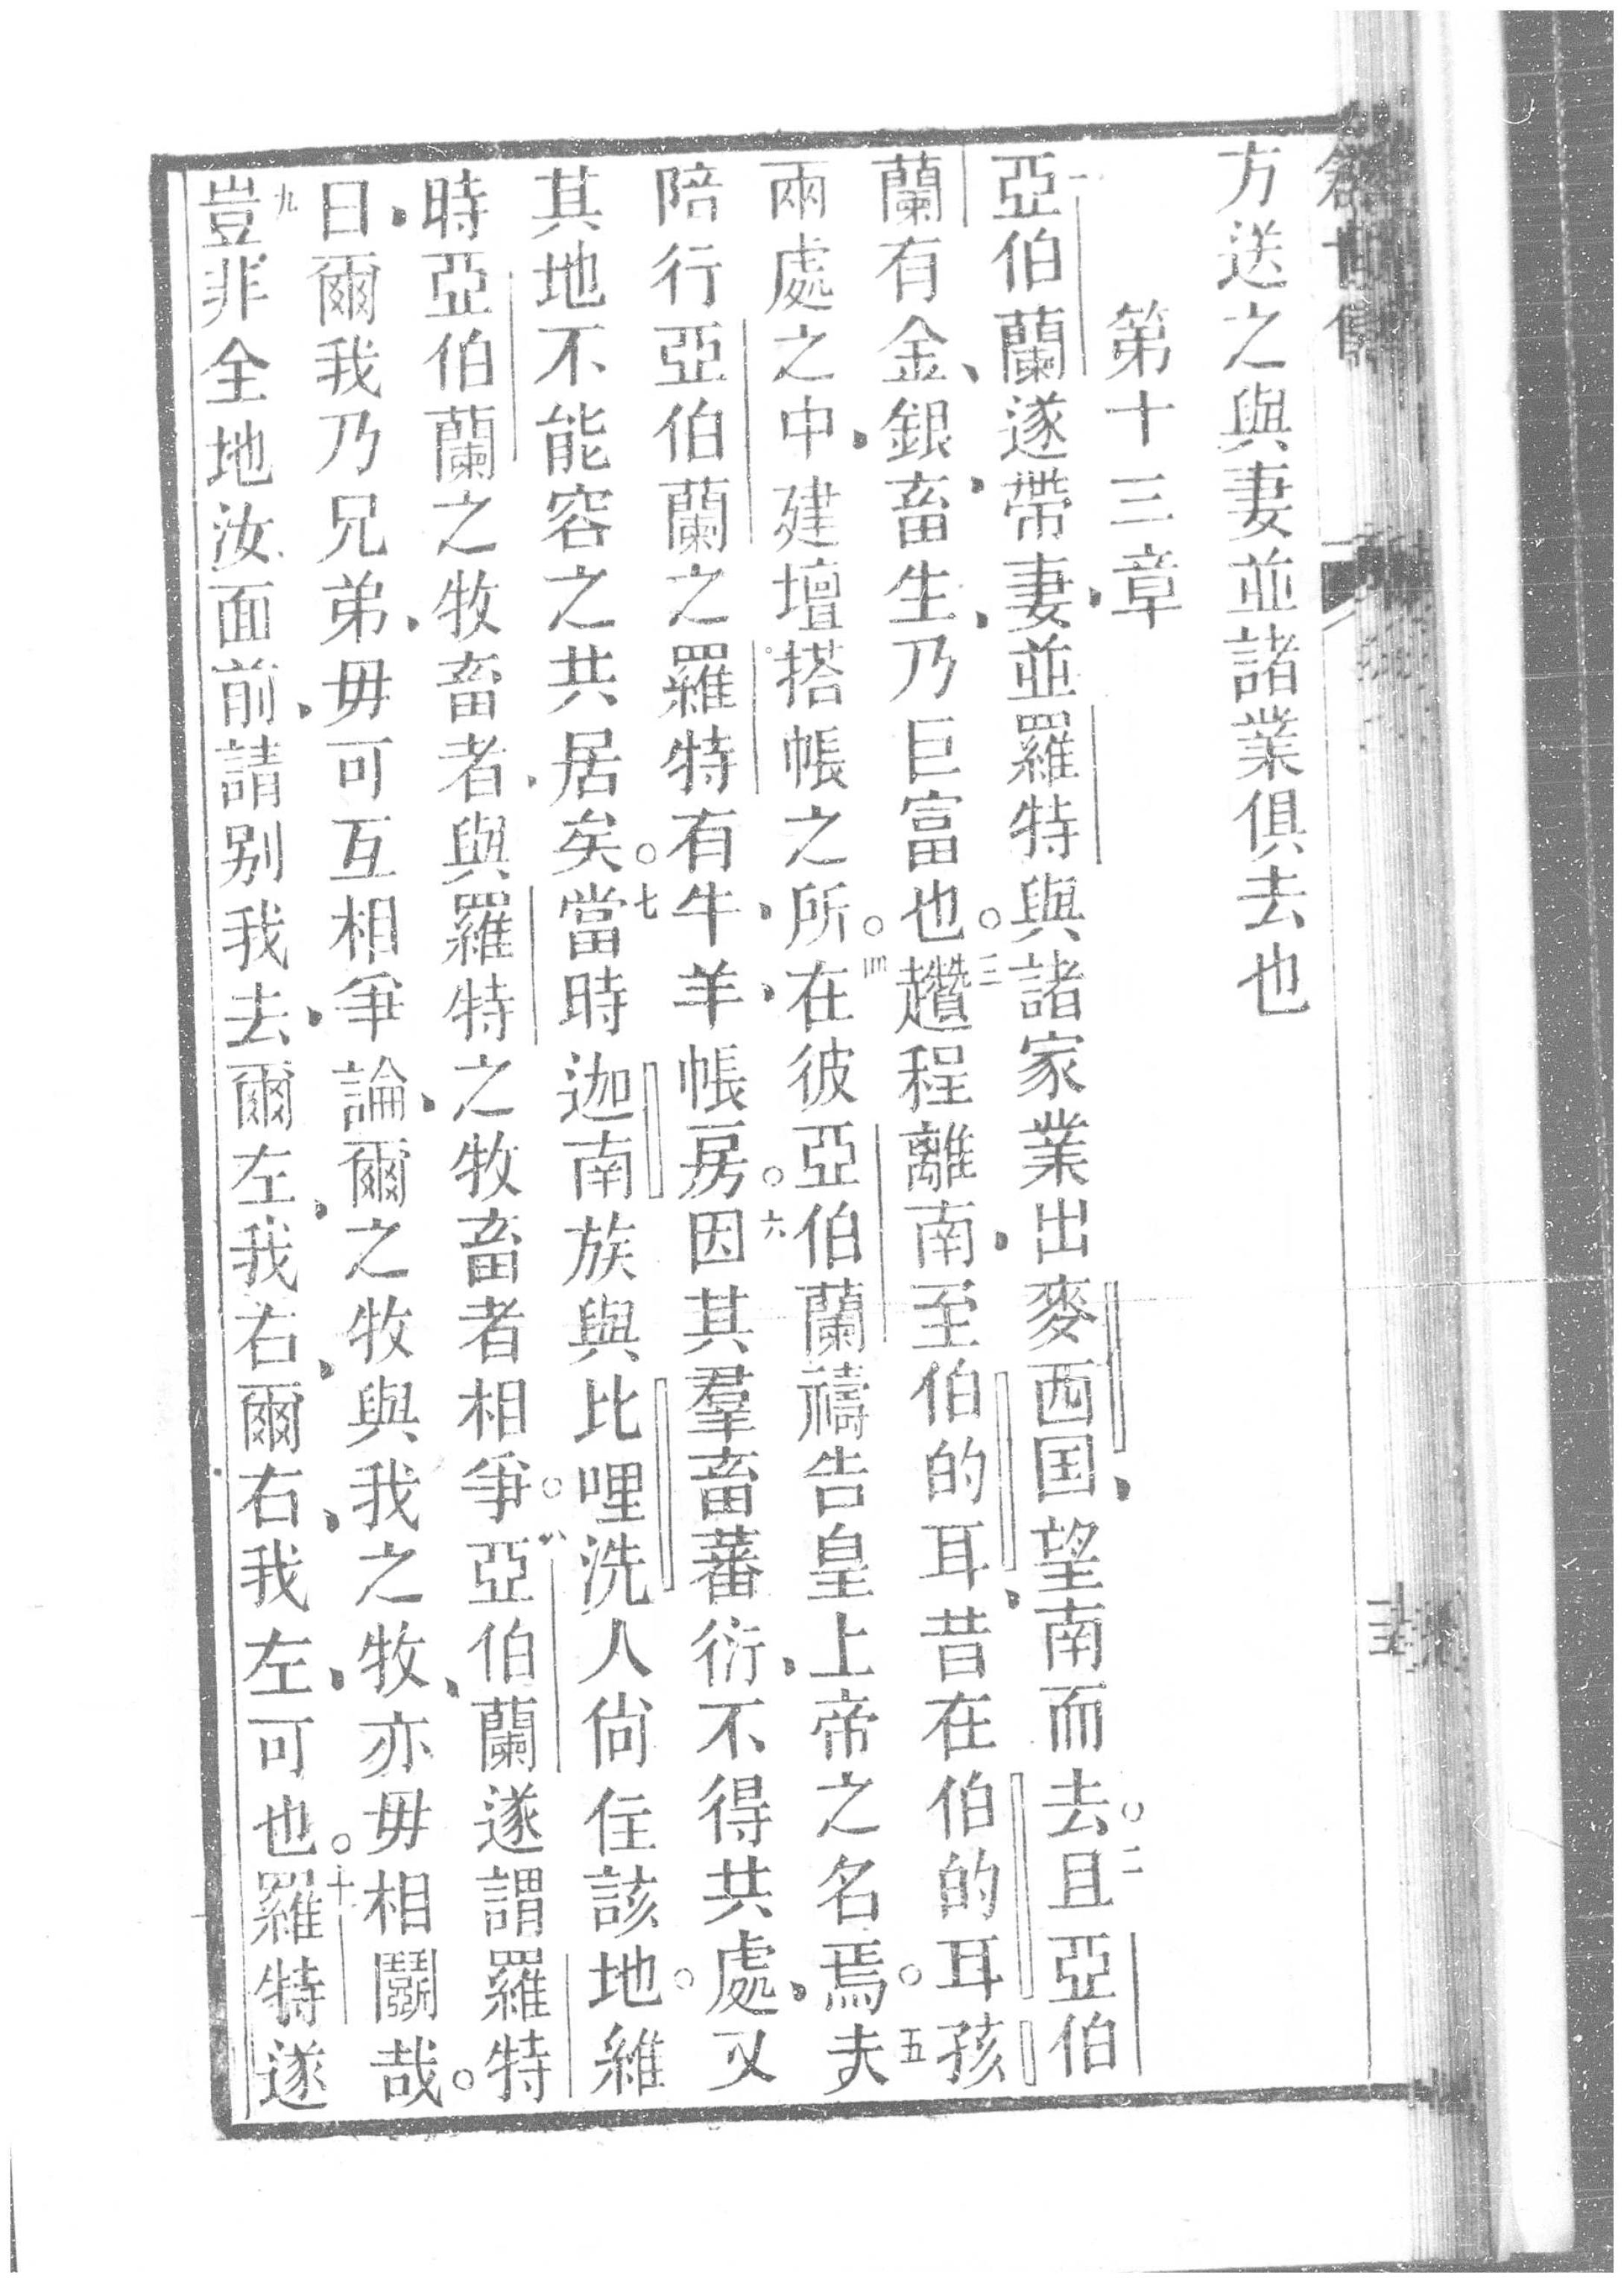 方送之與妻並諸業俱去也
第十三章
一亞伯蘭遂帶妻、並羅特與諸家業出麥西国、望南而去。二且亞伯
蘭有金、銀、畜生、乃巨富也。三趲程離南、至伯的耳、昔在伯的耳孩
兩處之中、建壇搭帳之所。四在彼亞伯蘭禱告皇上帝之名焉。五夫
陪行亞伯蘭之羅特有牛、羊、帳房。六因其羣畜蕃衍、不得共處、又
其地不能容之共居矣。七當時迦南族與比哩洗人尙住該地。維
時亞伯蘭之牧畜者、與羅特之牧畜者相爭。八亞伯蘭遂謂羅特
曰、爾我乃兄弟、毋可互相爭論、爾之牧與我之牧、亦毋相鬬哉。
九豈非全地汝面前、請别我去、爾左、我右、爾右、我左、可也。十羅特遂